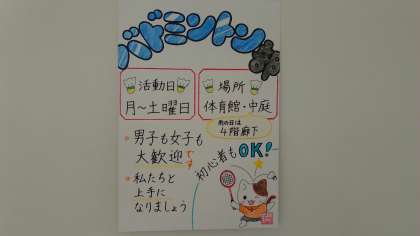 バドミントン
活動日
月～土曜日
場所
体育館・中庭
雨の日は
4階廊下
・男子も女子も
大歓迎です
・私たちと
上手に
なりましょう
初心者もOK!